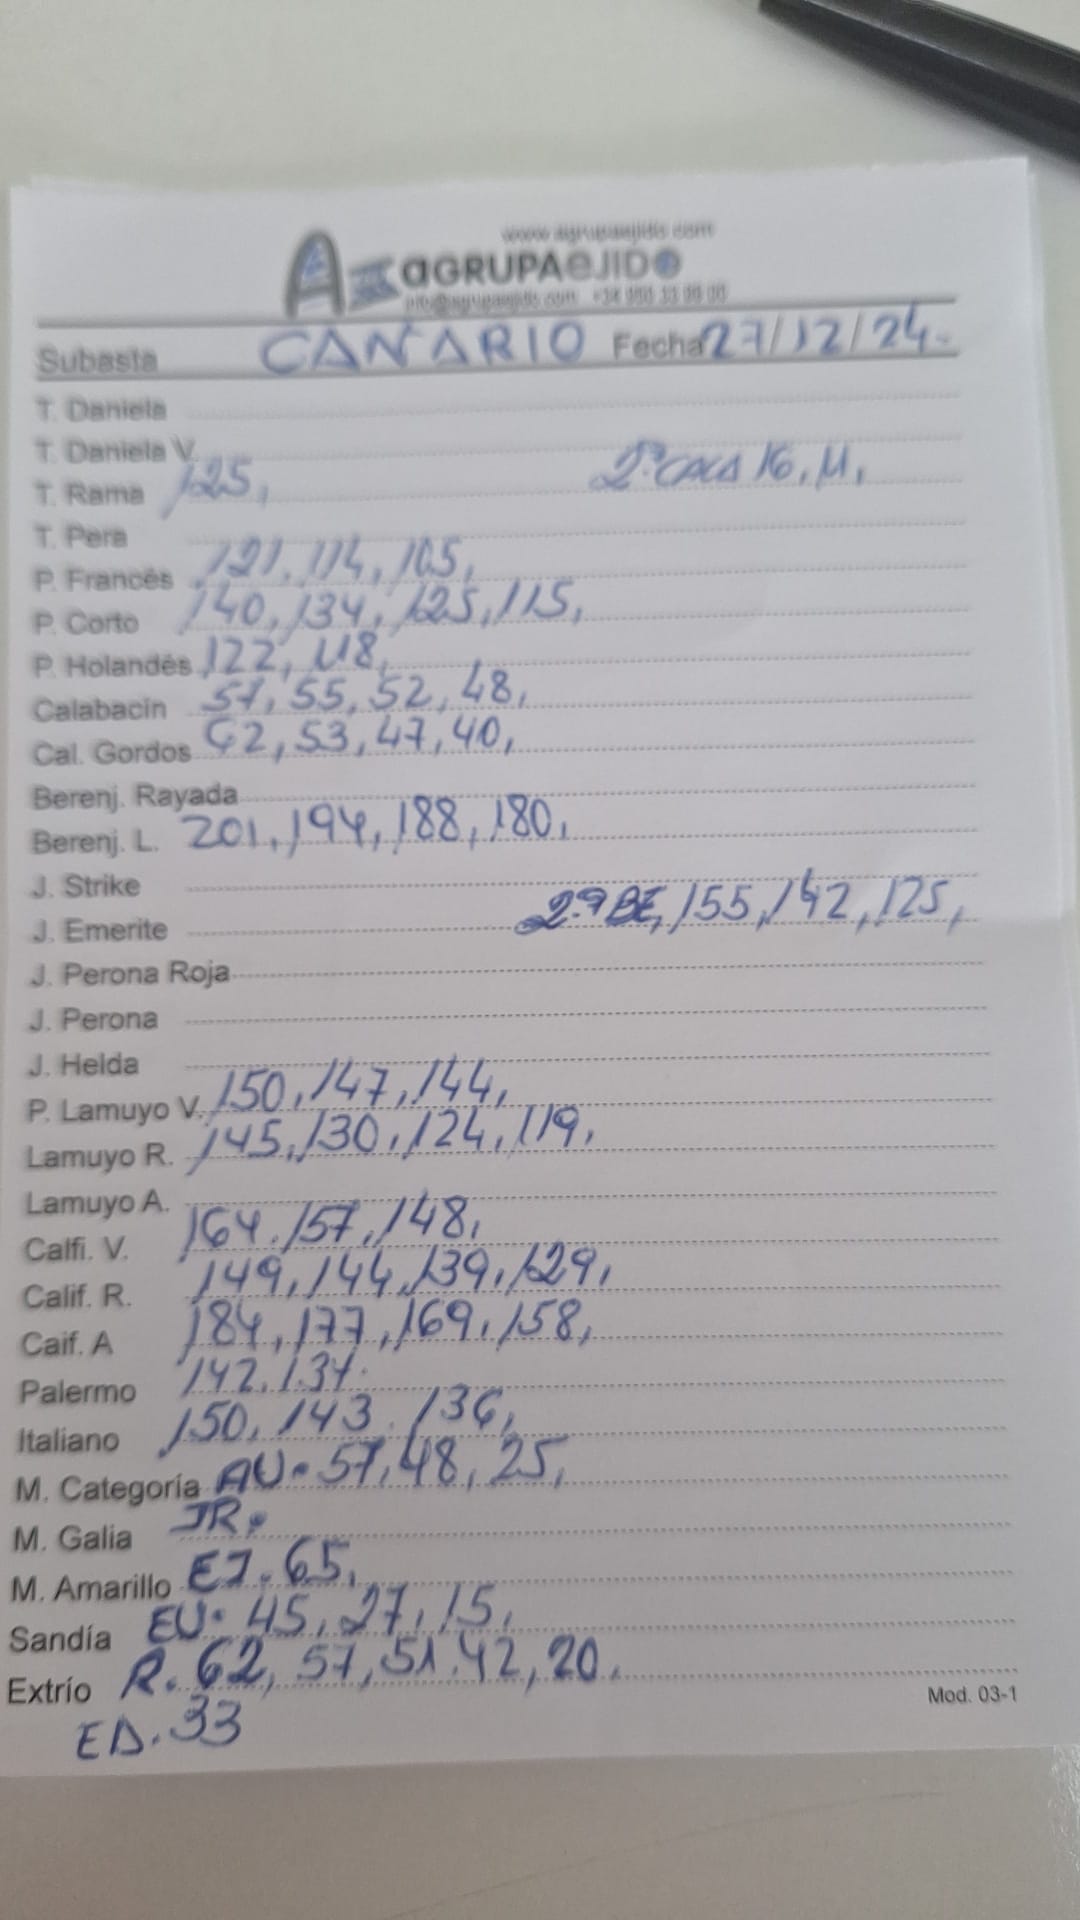 www.agrupaejido.com
AGRUPAEJIDO
info@agrupaejido.com
Subasta CAÑARIO Fecha 27/12/24.
T. Daniela
T. Daniela V.
T. Rama 125, 2ª CALA 16, 11,
T. Pera
P. Francés 121, 114, 105,
P. Corto 140, 134, 125, 115,
P. Holandés 122, 118,
Calabacin 57, 55, 52, 48,
Cal. Gordos 62, 53, 47, 40,
Berenj. Rayada
Berenj. L. 201, 194, 188, 180,
J. Strike
J. Emerite 2ª BE, 155, 142, 125,
J. Perona Roja
J. Perona
J. Helda
P. Lamuyo V. 150, 147, 144,
Lamuyo R. 145, 130, 124, 119,
Lamuyo A.
Calfi. V. 164. 157, 148,
Calif. R. 149, 144, 139, 129,
Caif. A 184, 177, 169, 158,
Palermo 142. 137.
Italiano 150, 143. 136,
M. Categoría AU. 57, 48, 25,
M. Galia JR.
M. Amarillo EJ. 65,
Sandía EU. 45, 27, 15,
Extrío R. 62, 57, 51. 42, 20.
Mod. 03-1
ED. 33